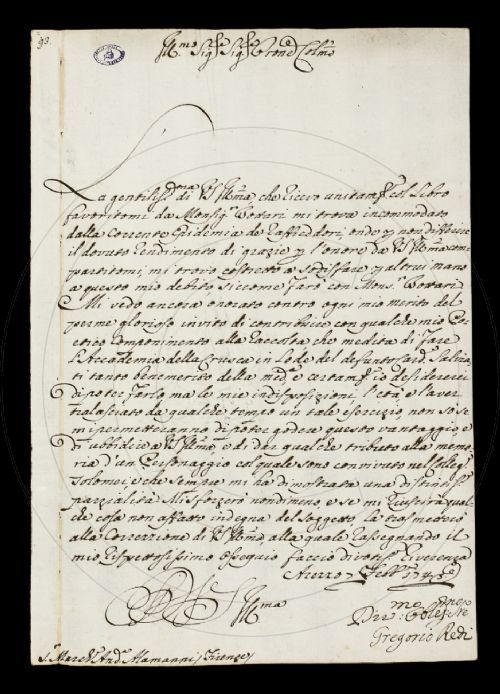 93.
Ill.mo Sig.r Sig.r Prone Colmo
La gentiliss.ma di VS Ill.ma che ricevo unitam.te col Libro
favoritomi da Monsig.r Bottari mi trova incommodato
dalla corrente Epidemia de Raffreddori, onde p non differire
il dovuto rendimento di grazie p l'onore da VS Ill.ma com
partitomi, mi trovo costretto a sodisfare p altrui mano
a questo mio debito siccome farò con Mons.r Bottari
Mi vedo ancora onorato contro ogni mio merito del
per me glorioso invito di contribuire con qualche mio Po
etico Componimento alla Raccolta che medita di fare
l'Accademia della Crusca in Lode del defunto Card. Salvia
ti tanto benemerito della med.a e certam.te io desidererei
di poter farlo, ma le mie indisposizioni, l'età, e l'aver
tralasciato da qualche tempo un tale esercizio, non so se
mi permetteranno di poter godere questo vantaggio, e
di ubbidire a VS Ill.ma, e di dar qualche tributo alla memo
ria d'un Personaggio col quale sono convivuto nel Colleg.o
Tolomei, e che sempre mi ha dimostrata una distintiss.a
parzialità. Mi sforzerò nondimeno, e se mi riuscirà qual
che cosa non affatto indegna del soggetto la trasmetterò
alla Correzione di VS Ill.ma, alla quale rassegnando il
mio rispettosissimo ossequio faccio divotiss.a riverenza
Arezzo 7 Febb.o
Di VS Ill.ma
Dev.mo Obbl.
Gregorio Redi
S.r March. And.a Alamanni / Firenze /